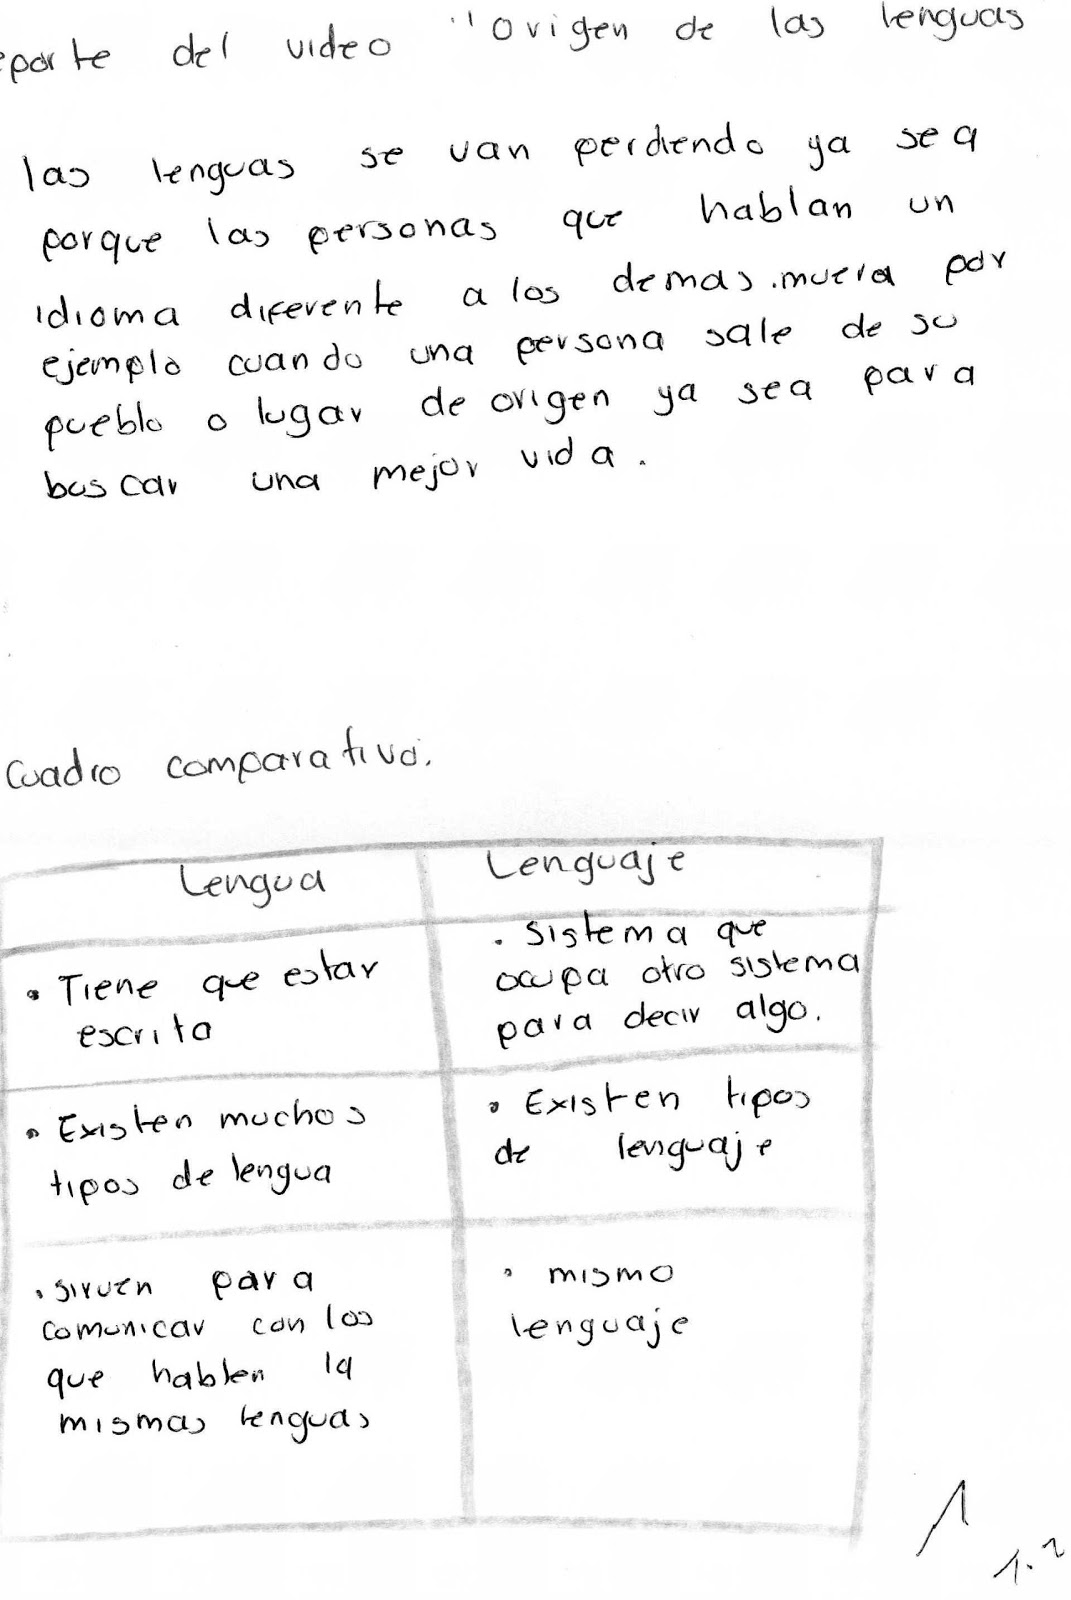 eporte del video "Origen de las lenguas
las lenguas se van perdiendo ya sea
porque las personas que hablan un
idioma diferente a los demas.muera por
ejemplo cuando una persona sale de su
pueblo o lugar de origen ya sea para
buscar una mejor vida.
Cuadro comparativo.
Lengua
Lenguaje
• Tiene que estar
escrito
• Sistema que
ocupa otro sistema
para decir algo.
• Existen muchos
tipos de lengua
• Existen tipos
de lenguaje
• sirven para
comunicar con los
que hablen la
mismas lenguas
• mismo
lenguaje
1
1.2